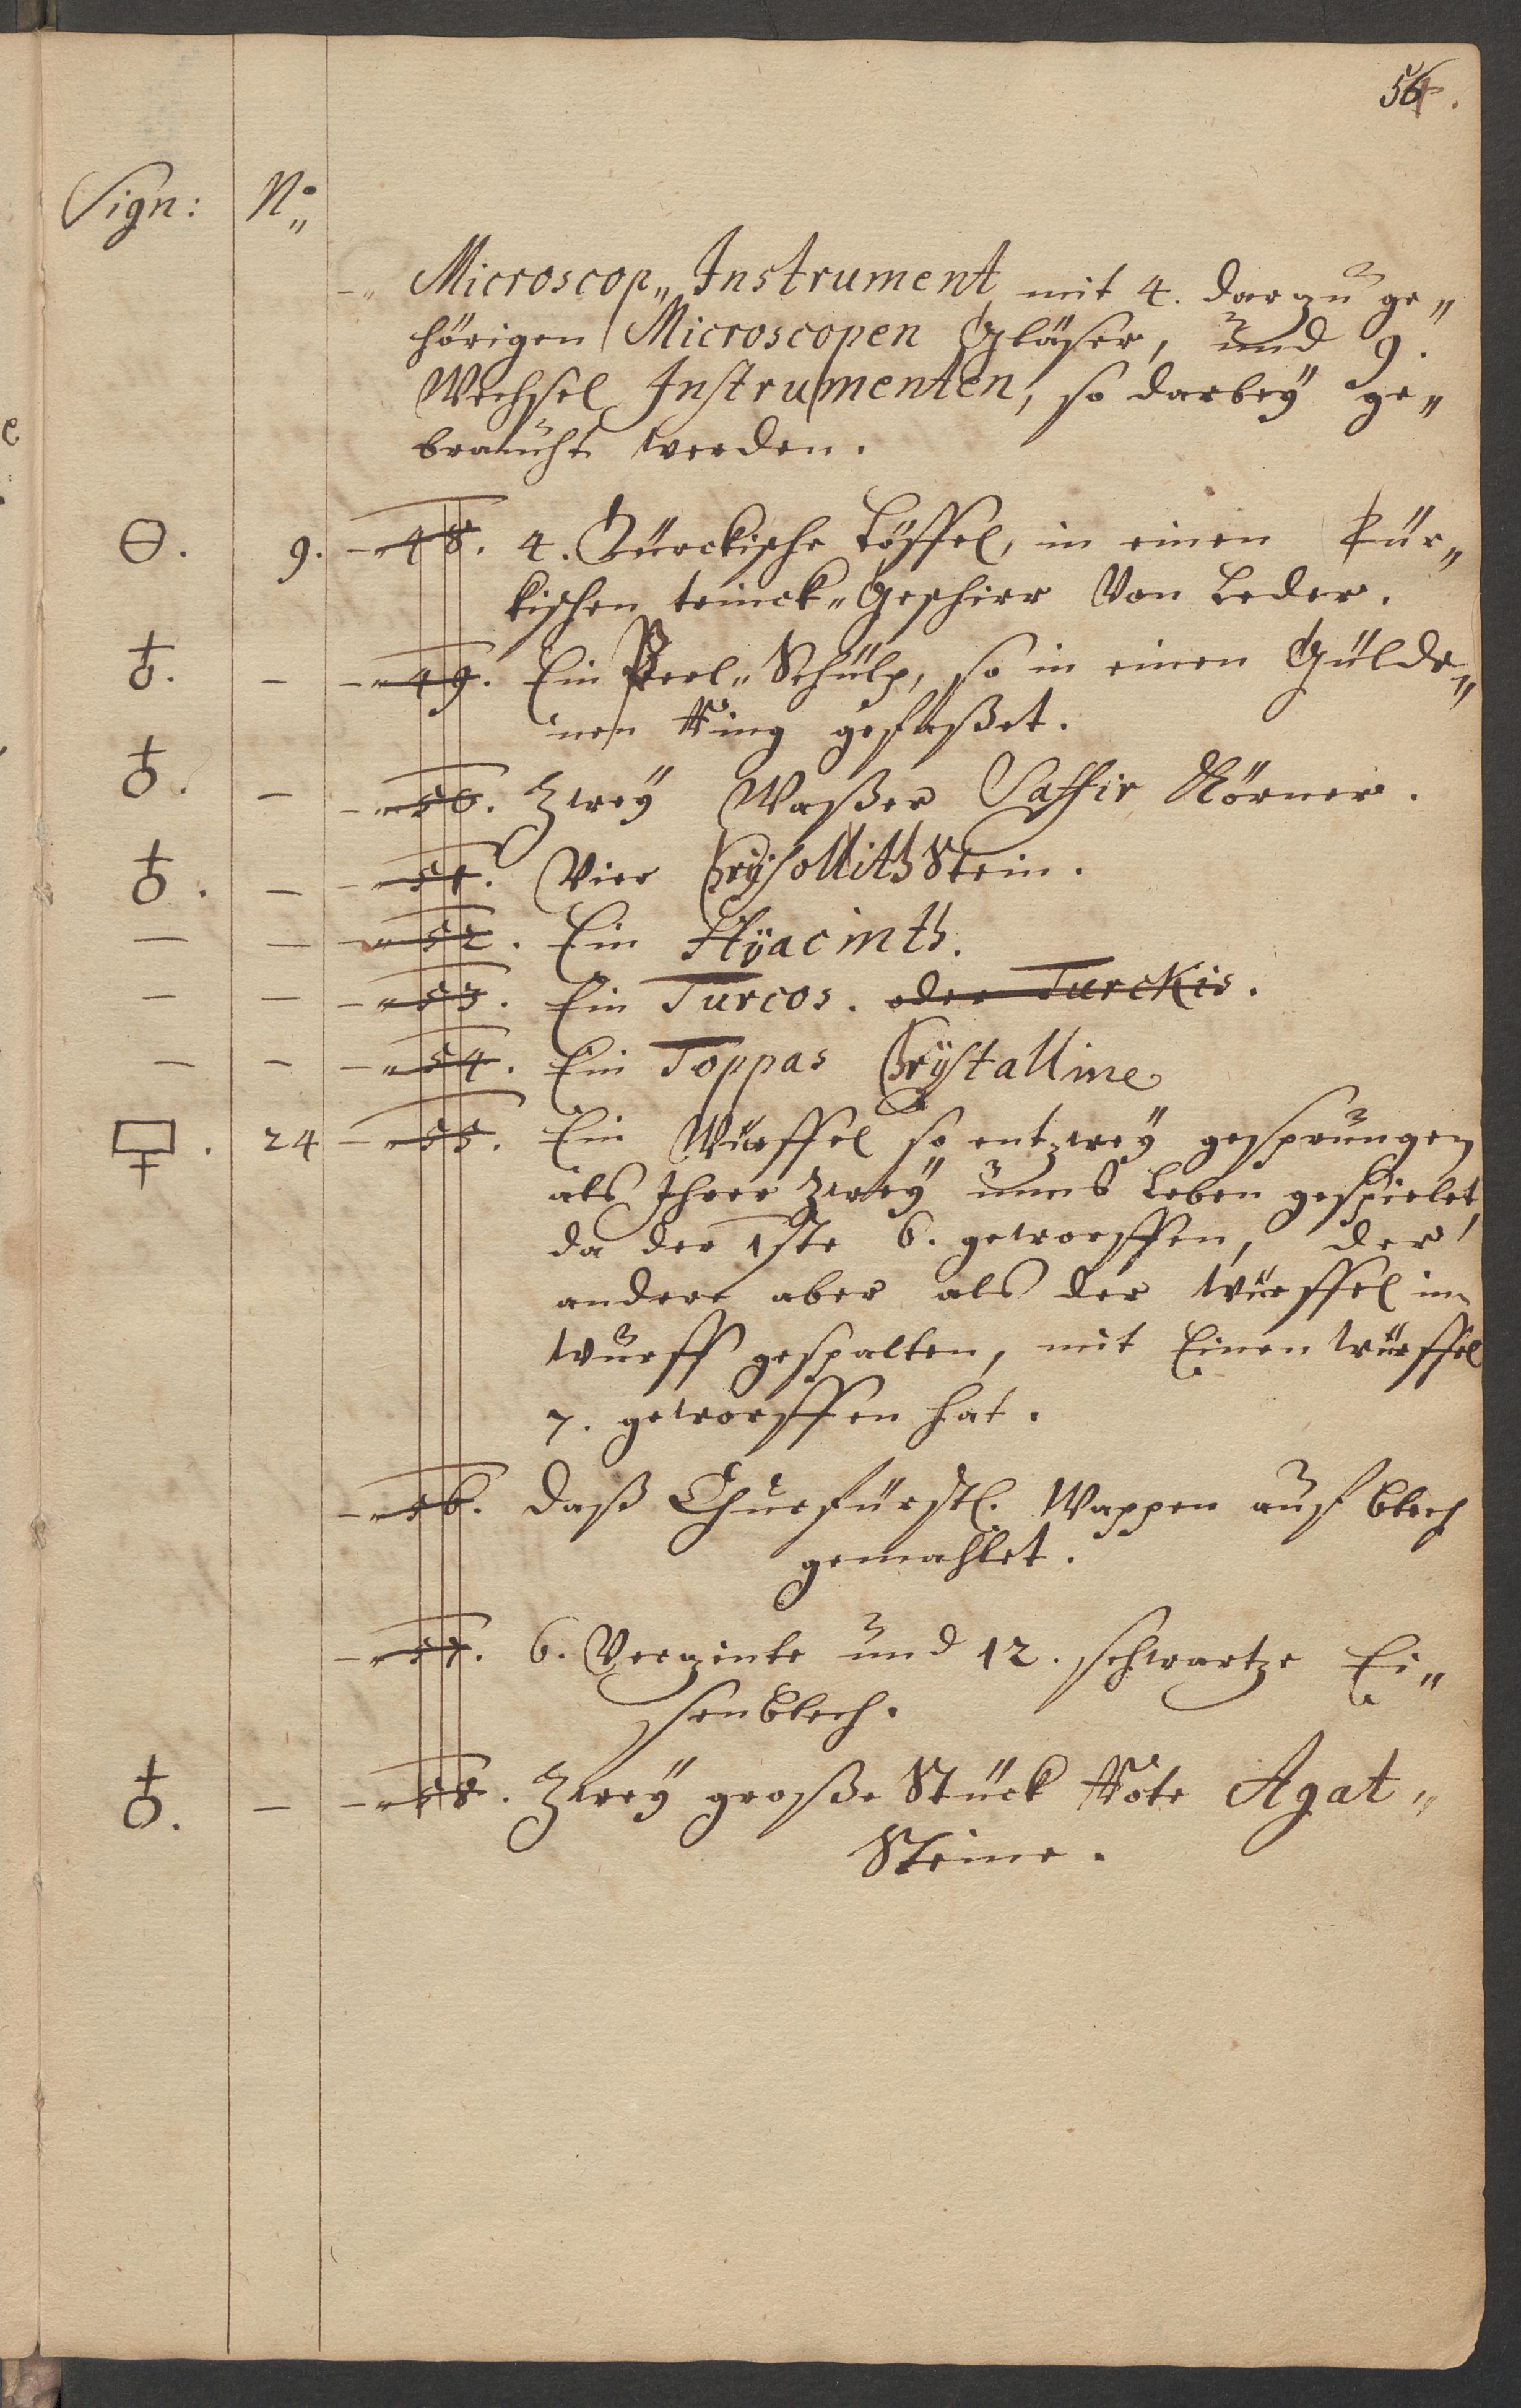 56.
Sign: No
-„ Microscop„ Instrument mit 4. darzu ge„
hörigen Microscopen Gläser, und 9.
Wechsel Instrumenten, so darbeÿ ge„
braucht werden.
⊖. 9. -„48. 4. Türckische Löffel, in einen Tür„
kischen trinck„Geschirr Von Leder.
♁. - -„49. Ein Perl„Schülp, so in einen Gülde„
nen Ring gefaßet.
♁. - -„50. Zweÿ Waßer Saffir Körner.
♁. - -„51. Vier Crÿsollith Stein.
- - -„52. Ein Hÿacinth.
- - -„53. Ein Turcos. oder Turckis.
- - -„54. Ein Toppas Crÿstalline
. 24 -„55. Ein Würffel so entzweÿ gesprungen
als Ihrer Zweÿ ums Leben gespielet,
da der 1ste 6. geworffen, der
andere aber als der Würffel im
Wurff gespalten, mit Einen Würffel
7. geworffen hat.
-„56. Daß Churfürstl. Wappen auf blech
gemahlet.
-„57. 6. Verzinte und 12. schwartze Ei„
senblech.
♁. - -„58. Zweÿ große Stück Rote Agat„
Steine.